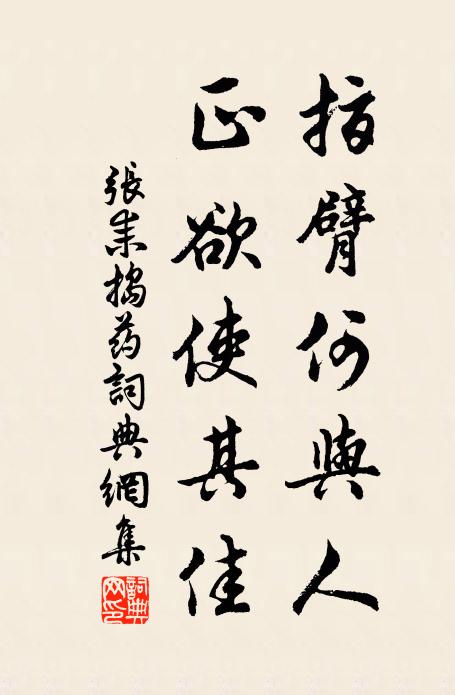 指臂何與人
正欲使其佳
張耒搗药詞典網集
詞典网印